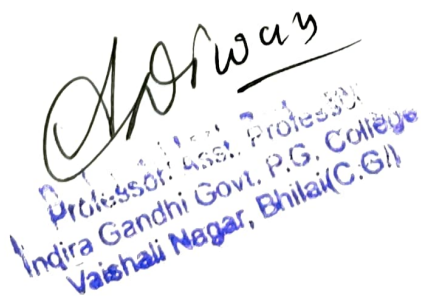 Professor/Asst. Professor
Indira Gandhi Govt. P.G. College
Vaishali Nagar, Bhilai(C.G.)